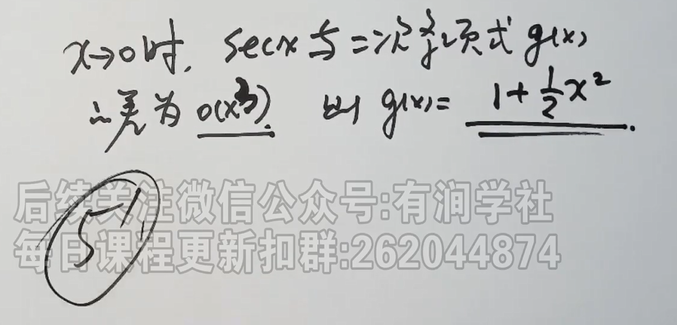 x→0时, secx与二次多项式g(x)
之差为 o(x³) 则 g(x)= 1+½x².
后续关注微信公众号:有涧学社
5'
每日课程更新扣群:262044874